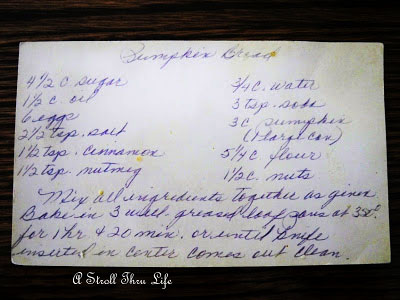 Pumpkin Bread
4 1/2 c. sugar
1 1/2 c. oil
6 eggs
2 1/2 tsp. salt
1 1/2 tsp. cinnamon
1 1/2 tsp. nutmeg
3/4 c. water
3 tsp. soda
3 c pumpkin
(1 large can)
5 1/4 c. flour
1 1/2 c. nuts
Mix all ingredients together as given
Bake in 3 well greased loaf pans at 350°
for 1 hr & 20 min. or until knife
inserted in center comes out clean.
A Stroll Thru Life